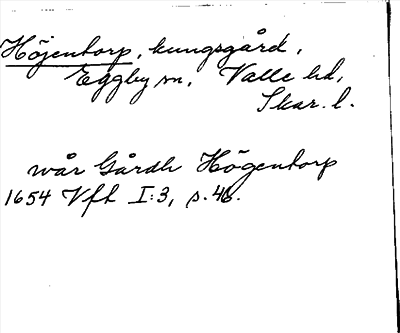 Höjentorp, kungsgård,
Eggby sn, Valle hd,
Skar. l.
wår Gårdh Högentorp
1654 Vft I:3, s. 46.